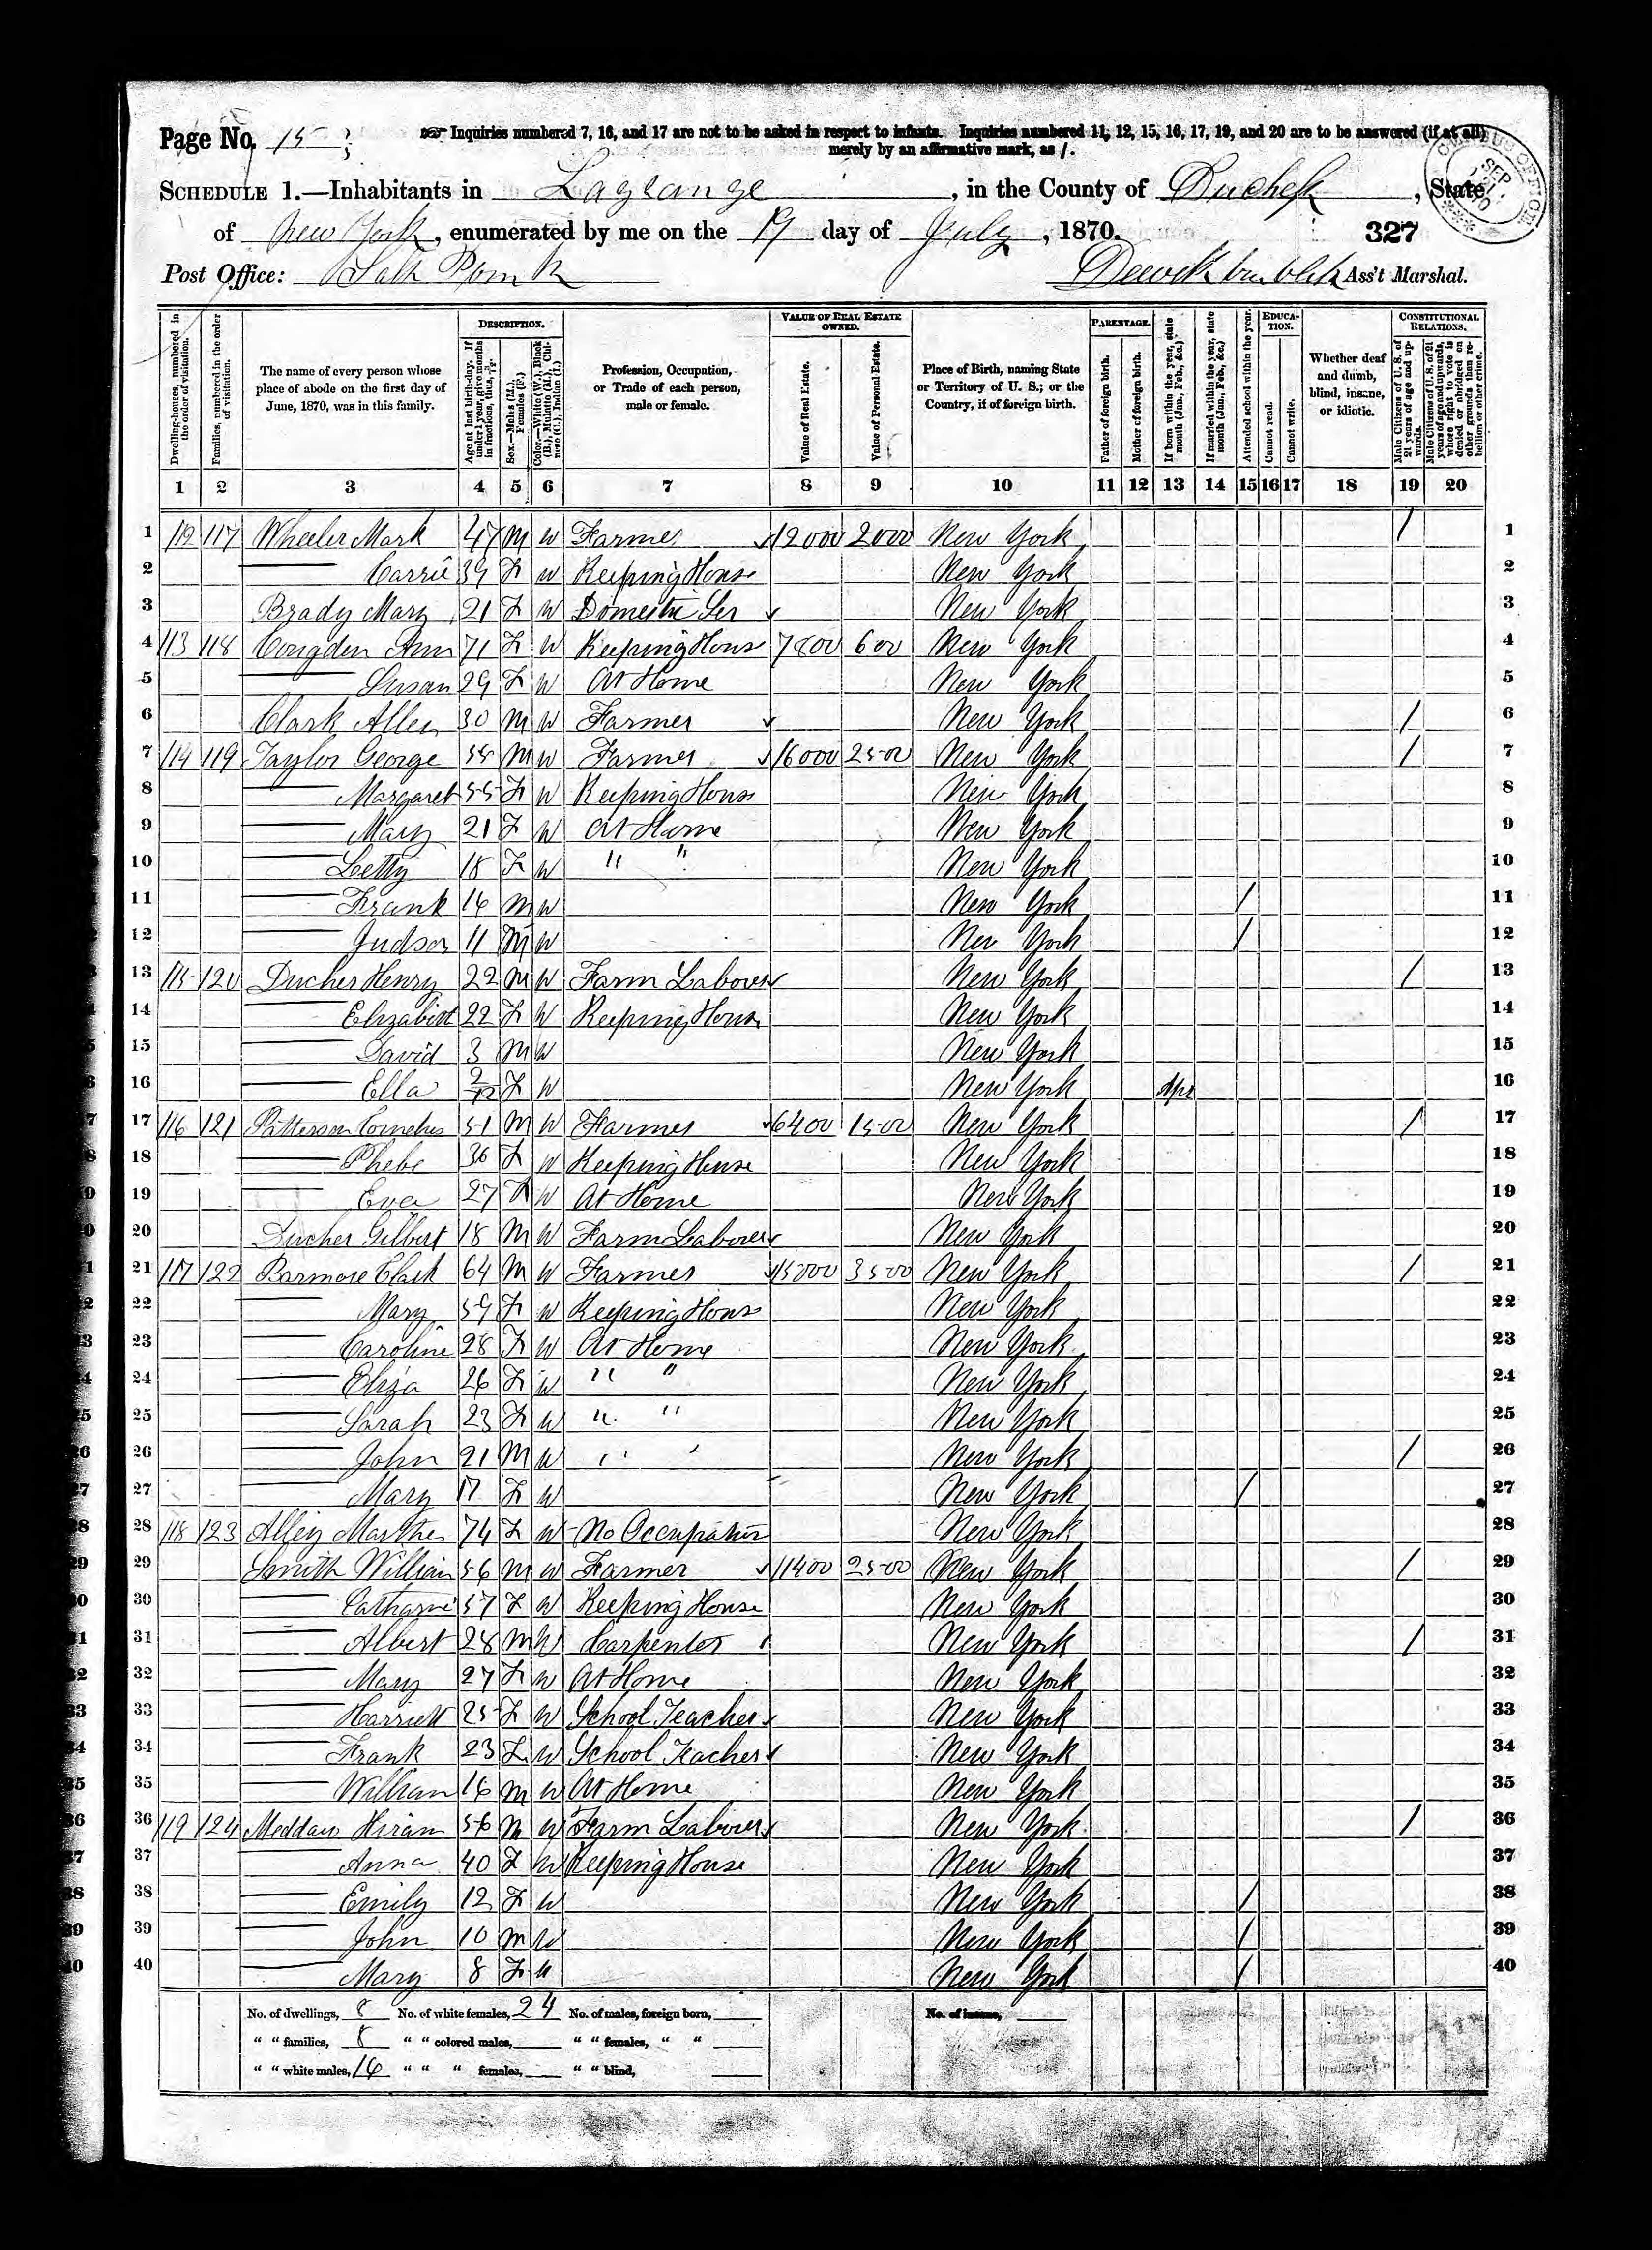 Page No. 15
Inquiries numbered 7, 16, and 17 are not to be asked in respect to infants. Inquiries numbered 11, 12, 15, 16, 17, 19, and 20 are to be answered (if at all)
merely by an affirmative mark, as /.
SCHEDULE 1.—Inhabitants in Lagrange, in the County of, State
of New York, enumerated by me on the 19 day of July, 1870.
327
Post Office: Ass't Marshal.
CENSUS OFFICE SEP 1870
Dwelling-houses, numbered in the order of visitation.
Families, numbered in the order of visitation.
The name of every person whose place of abode on the first day of June, 1870, was in this family.
DESCRIPTION.
Age at last birth-day. If under 1 year, give months in fractions, thus, 3/12.
Sex.—Males (M.), Females (F.)
Color.—White (W.), Black (B.), Mulatto (M.), Chinese (C.), Indian (I.)
Profession, Occupation, or Trade of each person, male or female.
VALUE OF REAL ESTATE OWNED.
Value of Real Estate.
Value of Personal Estate.
Place of Birth, naming State or Territory of U. S.; or the Country, if of foreign birth.
PARENTAGE.
Father of foreign birth.
Mother of foreign birth.
If born within the year, state month (Jan., Feb., &c.)
If married within the year, state month (Jan., Feb., &c.)
EDUCATION.
Attended school within the year.
Cannot read.
Cannot write.
Whether deaf and dumb, blind, insane, or idiotic.
CONSTITUTIONAL RELATIONS.
Male Citizens of U. S. of 21 years of age and upwards.
Male Citizens of U. S. of 21 years of age and upwards, whose right to vote is denied or abridged on other grounds than rebellion or other crime.
1 2 3 4 5 6 7 8 9 10 11 12 13 14 15 16 17 18 19 20
1 112 117 Wheeler Mark 47 M W Farmer 12000 2000 New York / 1
2 — Carrie 39 F W Keeping House New York 2
3 Brady Mary 21 F W Domestic Ser New York 3
4 113 118 Congden Ann 71 F W Keeping Hous 7800 600 New York 4
5 — Susan 29 F W At Home New York 5
6 Clark Allen 30 M W Farmer New York / 6
7 114 119 Taylor George 55 M W Farmer 16000 2500 New York / 7
8 — Margaret 55 F W Keeping Hous New York 8
9 — Mary 21 F W At Home New York 9
10 — Letty 18 F W " " New York 10
11 — Frank 14 M W New York / 11
12 — Judson 11 M W New York / 12
13 115 120 Ducher Henry 22 M W Farm Laborer New York / 13
14 — Elizabeth 22 F W Keeping House New York 14
15 — David 3 M W New York 15
16 — Ella 2/12 F W New York Apr 16
17 116 121 Patterson Cornelius 51 M W Farmer 6400 1500 New York / 17
18 — Phebe 36 F W Keeping House New York 18
19 — Eva 27 F W At Home New York 19
20 Ducher Gilbert 18 M W Farm Laborer New York 20
21 117 122 Barmore Clark 64 M W Farmer 15000 3500 New York / 21
22 — Mary 59 F W Keeping Hous New York 22
23 — Caroline 28 F W At Home New York 23
24 — Eliza 26 F W " " New York 24
25 — Sarah 23 F W " " New York 25
26 — John 21 M W " " New York / 26
27 — Mary 17 F W New York / 27
28 118 123 Alley Martha 74 F W No Occupation New York 28
29 Smith William 56 M W Farmer 11400 2500 New York / 29
30 — Catharine 57 F W Keeping House New York 30
31 — Albert 28 M W Carpenter New York / 31
32 — Mary 27 F W At Home New York 32
33 — Harriett 25 F W School Teacher New York 33
34 — Frank 23 F W School Teacher New York 34
35 — William 16 M W At Home New York 35
36 119 124 Meddaw Hiram 56 M W Farm Laborer New York / 36
37 — Anna 40 F W Keeping House New York 37
38 — Emily 12 F W New York / 38
39 — John 10 M W New York / 39
40 — Mary 8 F W New York / 40
No. of dwellings, 8 No. of white females, 24 No. of males, foreign born, No. of insane,
" " families, 8 " " colored males, " " females, " "
" " white males, 16 " " " females, " " blind,